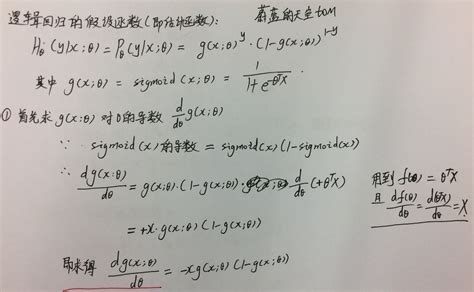 逻辑回归的假设函数(即估计函数): 蔚蓝的天空tom
H_θ(y|x;θ) = P_θ(y|x;θ) = g(x;θ)^y · (1-g(x;θ))^{1-y}
其中 g(x;θ) = sigmoid(x;θ) = 1/(1+e^{-θ^T X})
① 首先求 g(x;θ) 对θ的导数 d/dθ g(x;θ)
∵ sigmoid(x)的导数 = sigmoid(x)(1-sigmoid(x))
∴ dg(x;θ)/dθ = g(x;θ)·(1-g(x;θ))· d/dθ (+θ^T X)
用到 f(θ) = θ^T X
且 df(θ)/dθ = d(θ^T X)/dθ = X
= +x·g(x;θ)(1-g(x;θ))
即求得 dg(x;θ)/dθ = -xg(x;θ)(1-g(x;θ))